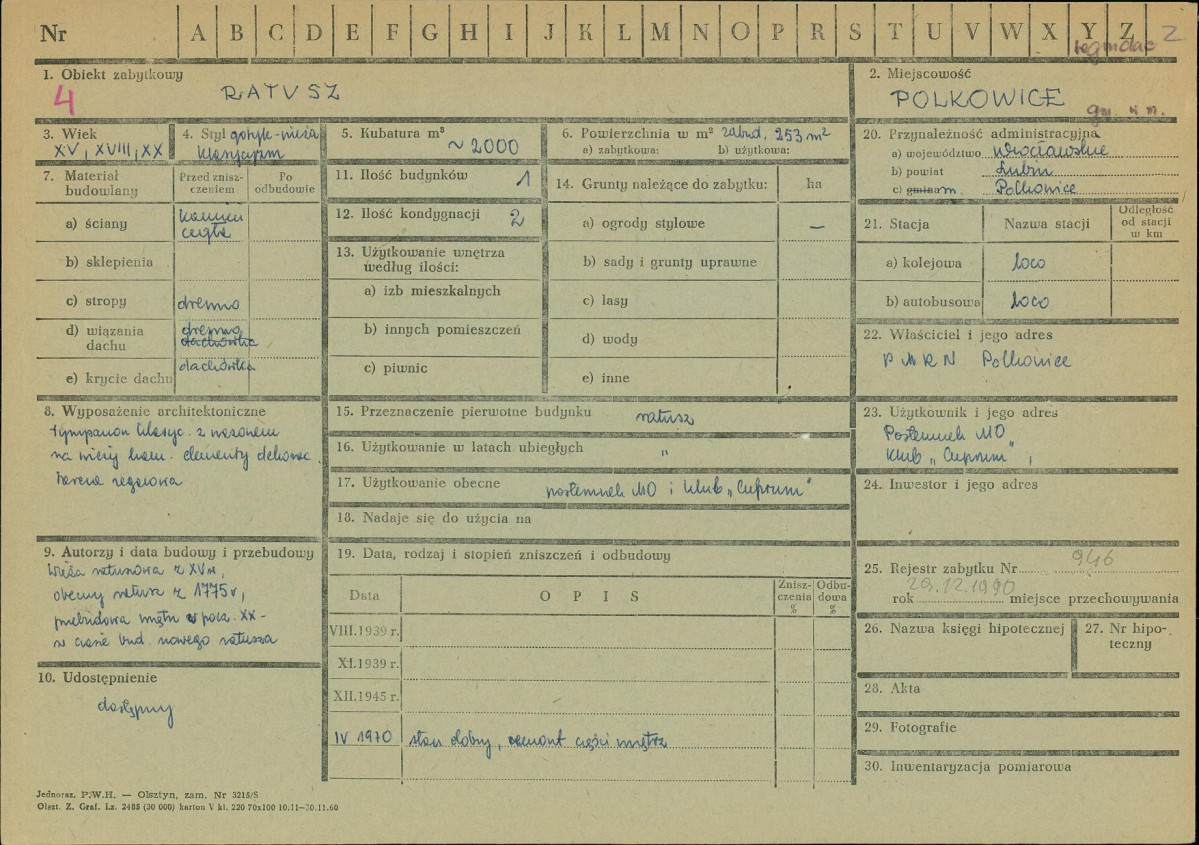 Nr A B C D E F G H I J K L M N O P R S T U V W X Y Z 2
1. Obiekt zabytkowy
4
RATUSZ
2. Miejscowość
POLKOWICE
gm. i m.
3. Wiek
XV, XVIII, XX
4. Styl gotyk-wieża
klasycyzm
5. Kubatura m³
~ 2000
6. Powierzchnia w m² zabud. 253 m²
a) zabytkowa: b) użytkowa:
20. Przynależność administracyjna
a) województwo Wrocławskie
b) powiat Lubin
c) gmina m. Polkowice
7. Materiał budowlany
Przed zniszczeniem
Po odbudowie
a) ściany kamień
cegła
b) sklepienia
c) stropy drewno
d) wiązania dachu drewno
dachówka
e) krycie dachu dachówka
11. Ilość budynków 1
12. Ilość kondygnacji 2
13. Użytkowanie wnętrza
według ilości:
a) izb mieszkalnych
b) innych pomieszczeń
c) piwnic
14. Grunty należące do zabytku: ha
a) ogrody stylowe —
b) sady i grunty uprawne
c) lasy
d) wody
e) inne
21. Stacja Nazwa stacji Odległość od stacji w km
a) kolejowa loco
b) autobusowa loco
22. Właściciel i jego adres
PMRN Polkowice
8. Wyposażenie architektoniczne
tympanon klasyc. z wazonem
na wieży kam. elementy dekorac.
tarcza zegarowa
15. Przeznaczenie pierwotne budynku ratusz
16. Użytkowanie w latach ubiegłych "
17. Użytkowanie obecne posterunek MO i klub „Cuprum"
18. Nadaje się do użycia na
23. Użytkownik i jego adres
Posterunek MO
klub „Cuprum",
24. Inwestor i jego adres
9. Autorzy i data budowy i przebudowy
wieża ratuszowa z XV w,
obecny ratusz z 1775 r,
przebudowa wnętrz w pocz. XX -
w czasie bud. nowego ratusza
10. Udostępnienie
dostępny
19. Data, rodzaj i stopień zniszczeń i odbudowy
Data OPIS Zniszczenia % Odbudowa %
VIII.1939 r.
XI.1939 r.
XII.1945 r.
IV 1970 stan dobry, remont części wnętrz
25. Rejestr zabytku Nr 946
rok 29.12.1990 miejsce przechowywania
26. Nazwa księgi hipotecznej
27. Nr hipoteczny
28. Akta
29. Fotografie
30. Inwentaryzacja pomiarowa
Jednoraz. P.W.H. — Olsztyn, zam. Nr 3215/S
Olszt. Z. Graf. Lz. 2485 (30 000) karton V kl. 220 70x100 10.11—30.11.60